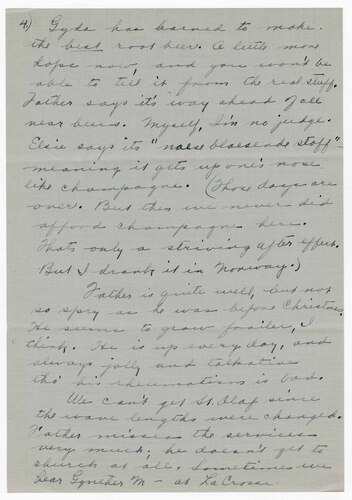 4) Gyda has learned to make
the best root beer. A little more
hops now, and you won't be
able to tell it from the real stuff.
Father says it's way ahead of all
near beers. Myself, I'm no judge.
Elsie says its "naese blaesende stoff"
meaning it gets up one's nose
like champagne. (Those days are
over. But then we never did
afford champagne here.
Thats only a striving after effect.
But I drank it in Norway.)
Father is quite well, but not
so spry as he was before Christmas.
He seems to grow frailer, I
think. He is up every day, and
always jolly and talkative
tho' his rheumatism is bad.
We can't get St. Olaf since
the wave lengths were changed.
Father misses the services
very much; he doesn't get to
church at all. Sometimes we
hear Gynther M- at LaCrosse